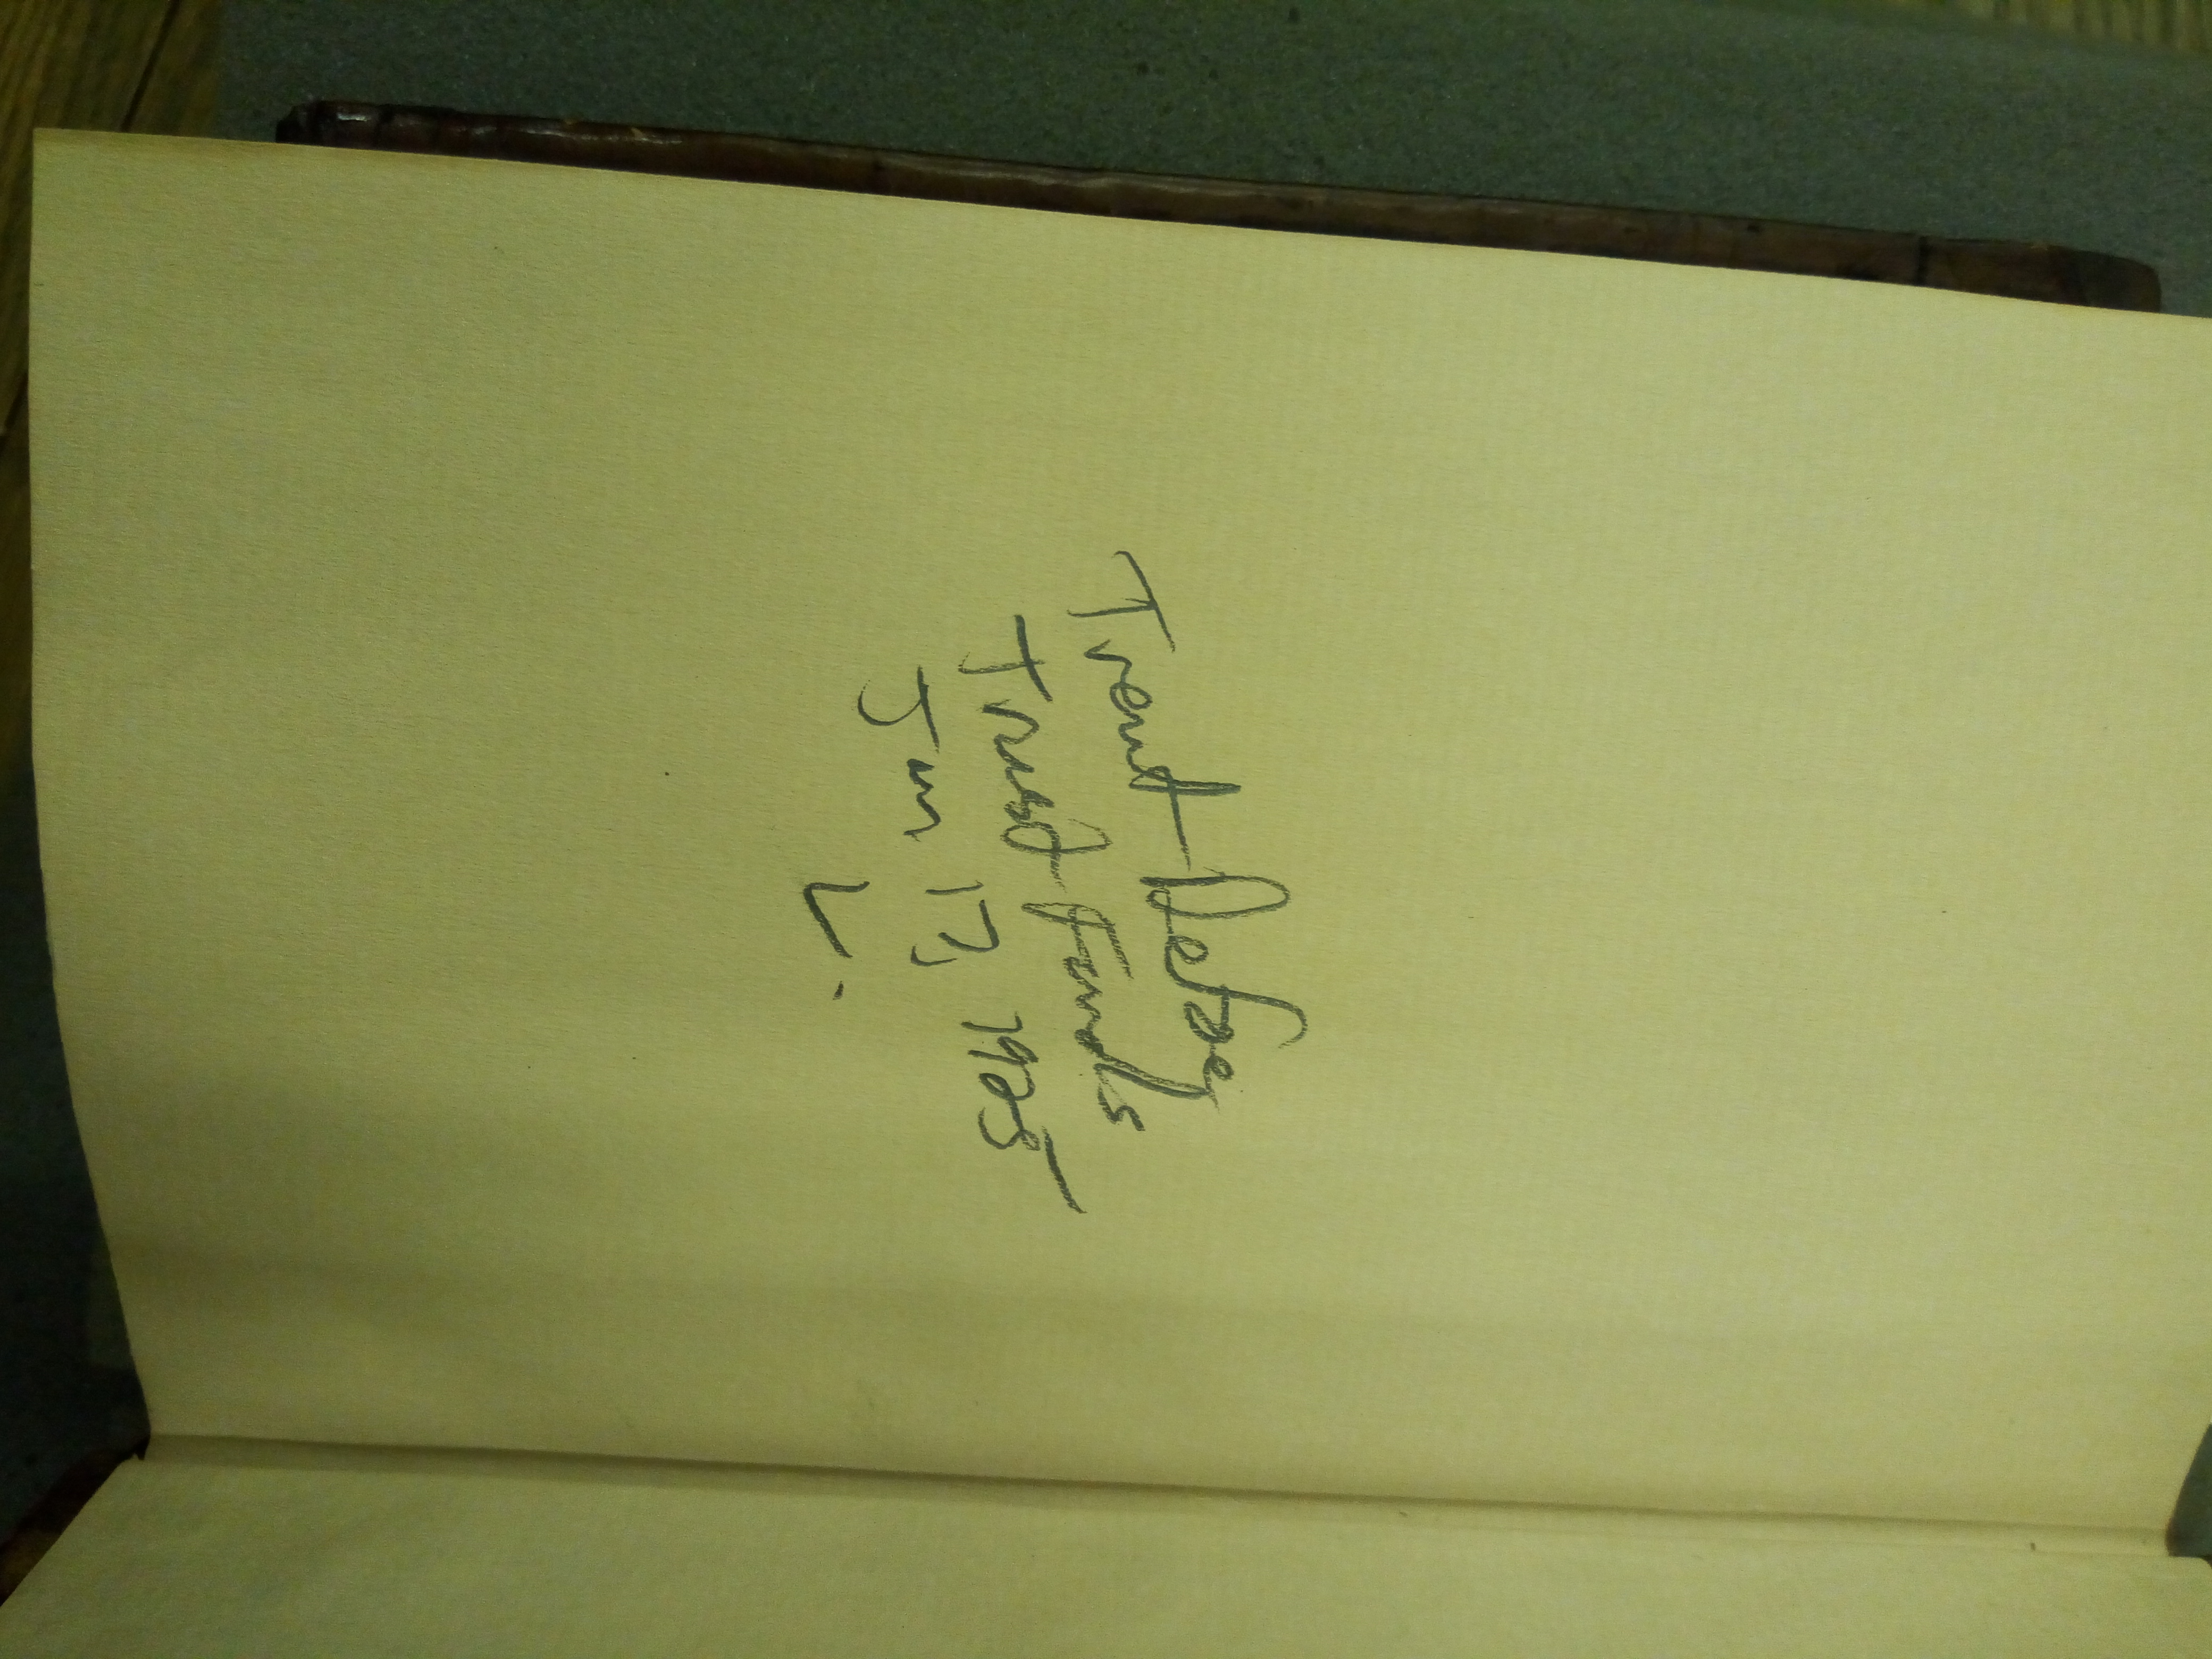 Trent Defoe
Trust Funds
Jun 17, 1925
L.